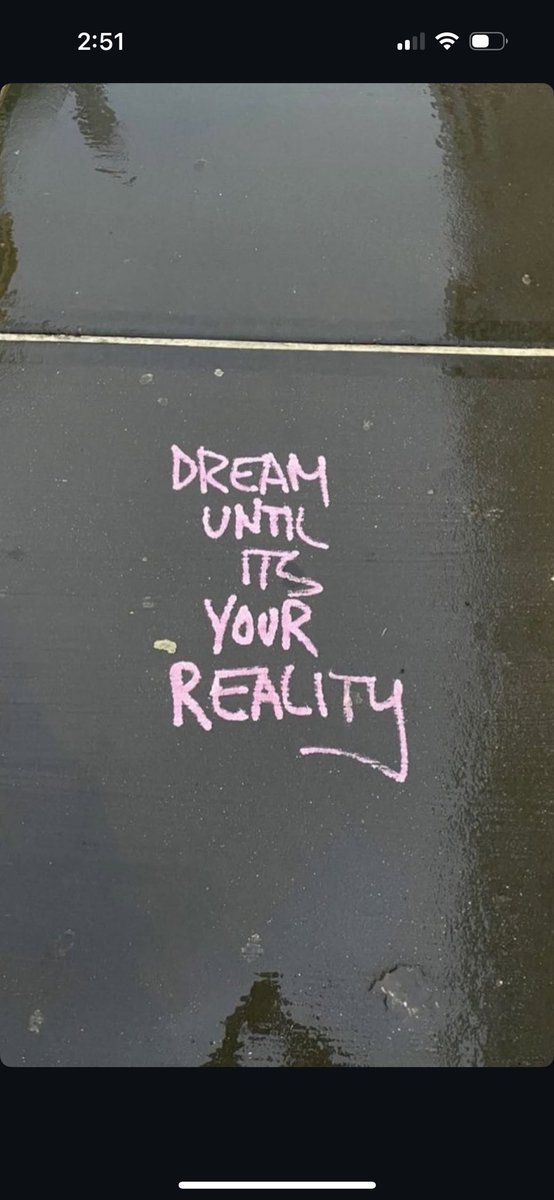 2:51
DREAM
UNTIL
ITS
YOUR
REALITY